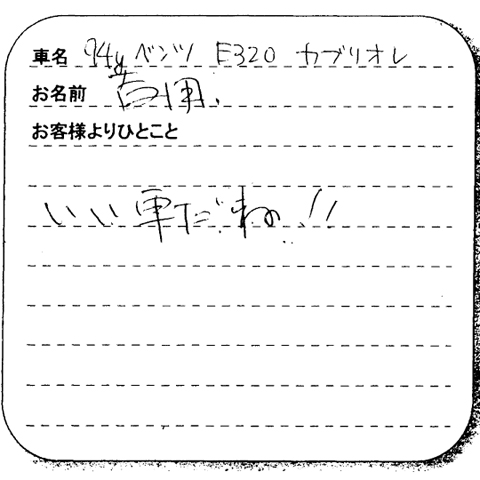 車名 94y ベンツ E320 カブリオレ
お名前
お客様よりひとこと
いい車だね!!